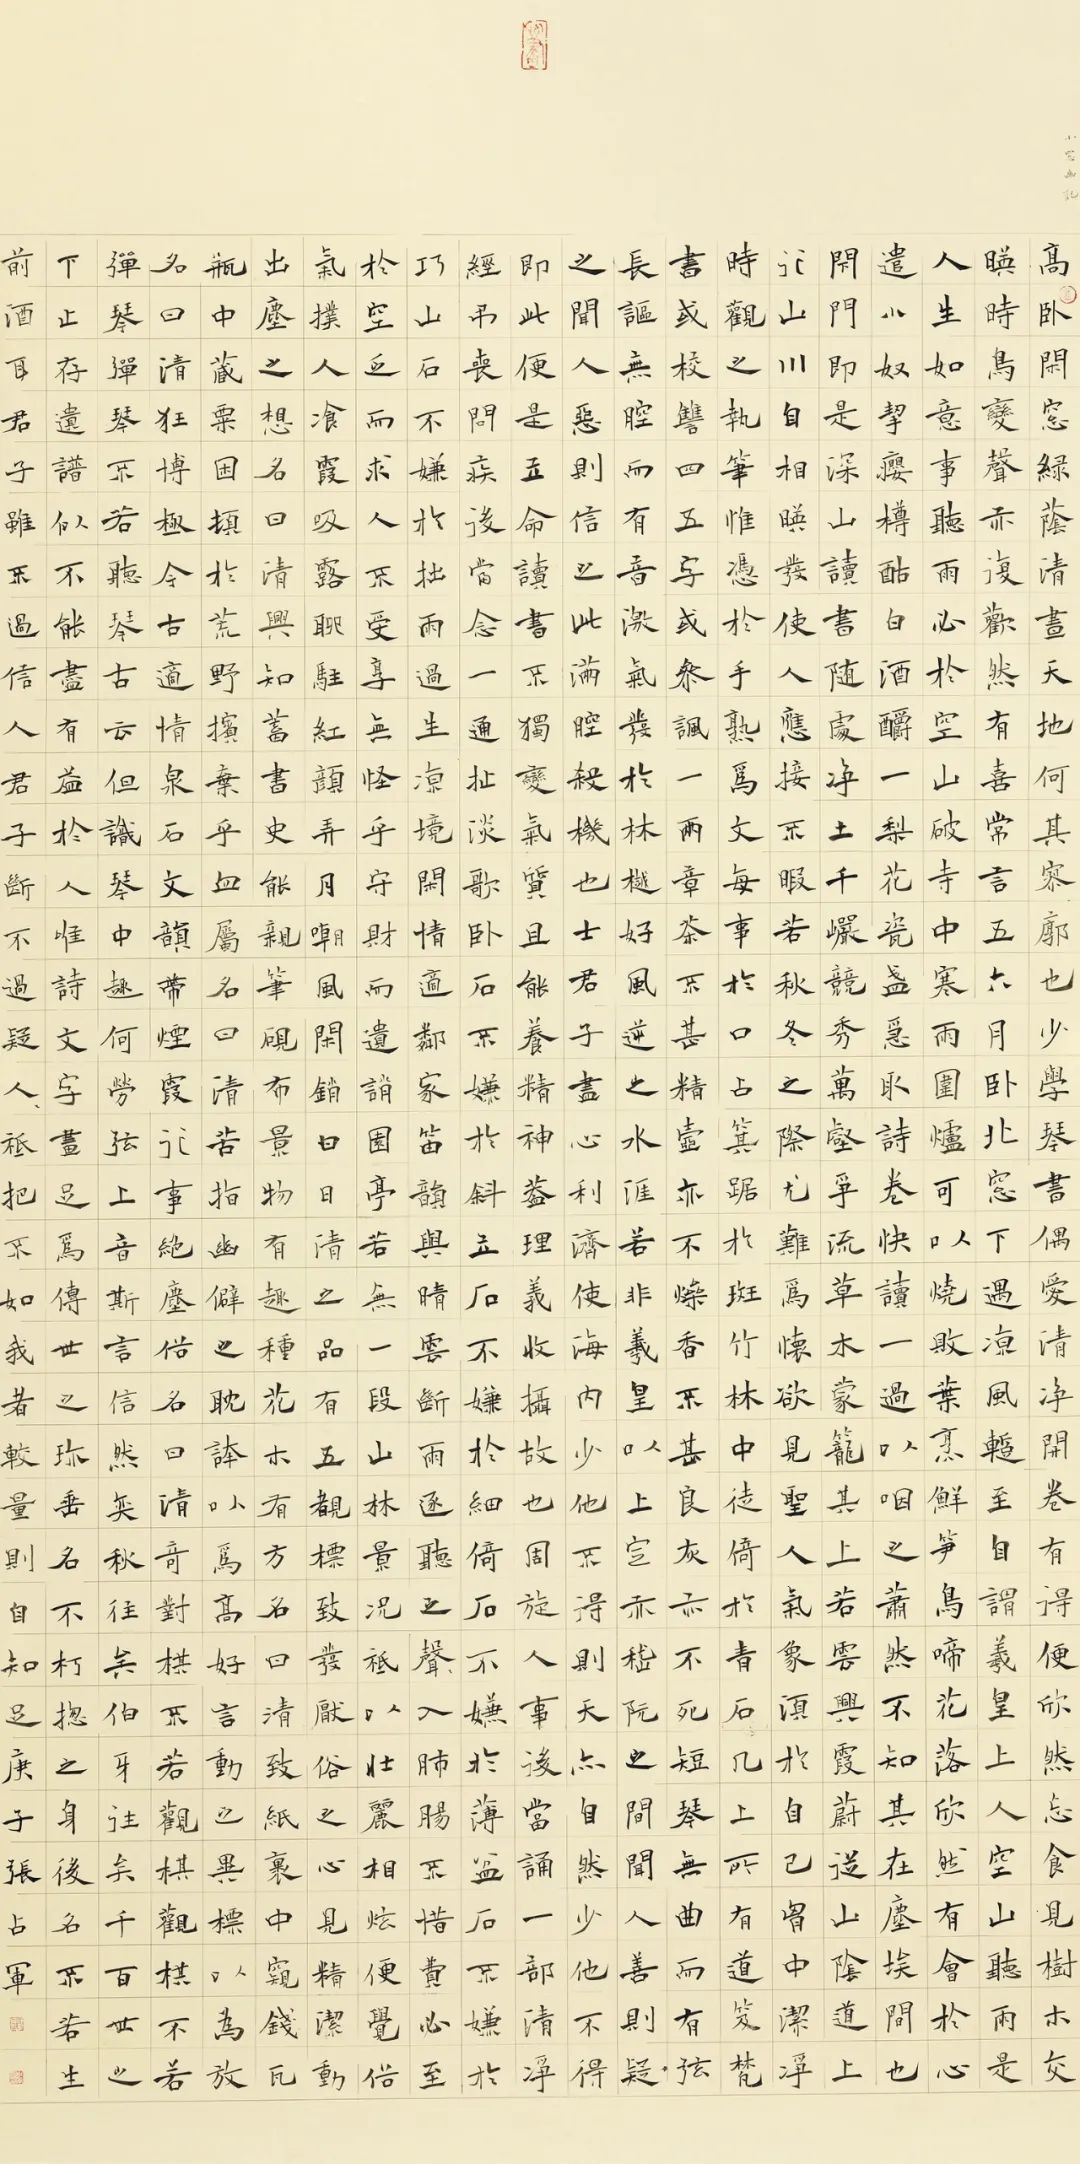 小窓幽記
高卧閑窓緑蔭清晝天地何其寥廓也少學琴書偶愛清净開卷有得便欣然忘食見樹木交
暎時鳥變聲亦復歡然有喜常言五六月卧北窓下遇凉風暫至自謂羲皇上人空山聽雨是
人生如意事聽雨必於空山破寺中寒雨圍爐可以燒敗葉烹鮮笋鳥啼花落欣然有會於心
遣小奴挈癭樽酤白酒釂一梨花瓷盏急取詩卷快讀一過以咽之蕭然不知其在塵埃間也
閑門即是深山讀書随處净土千巖競秀萬壑爭流草木蒙籠其上若雲興霞蔚從山陰道上
行山川自相暎發使人應接不暇若秋冬之際尤難爲懷欲見聖人氣象須於自己胷中潔淨
時觀之執筆惟憑於手熟爲文每事於口占箕踞於斑竹林中徒倚於青石几上所有道笈梵
書或校讐四五字或叅諷一兩章茶不甚精壺亦不燥香不甚良灰亦不死短琴無曲而有弦
長謳無腔而有音激氣發於林樾好風逆之水涯若非羲皇以上定亦嵇阮之間聞人善則疑
之聞人惡則信之此滿腔殺機也士君子盡心利濟使海內少他不得則天亦自然少他不得
即此便是立命讀書不獨變氣質且能養精神葢理義收攝故也周旋人事後當誦一部清淨
經弔喪問疾後當念一通扯淡歌卧石不嫌於斜立石不嫌於細倚石不嫌於薄盆石不嫌於
巧山石不嫌於拙雨過生凉境閑情適鄰家笛韻與晴雲斷雨逐聽之聲入肺腸不惜費必至
於空乏而求人不受享無怪乎守財而遺誚園亭若無一段山林景况祇以壯麗相炫便覺俗
氣撲人飡霞吸露聊駐紅顔弄月嘲風閑銷白日清之品有五覩標致發厭俗之心見精潔動
出塵之想名曰清興知蓄書史能親筆硯布景物有趣種花木有方名曰清致紙裹中窺錢瓦
瓶中藏粟困頓於荒野擯棄乎血屬名曰清苦指幽僻之耽誇以爲高好言動之異標以為放
名曰清狂博極今古適情泉石文韻帶煙霞行事絶塵俗名曰清奇對棋不若觀棋觀棋不若
彈琴彈琴不若聽琴古云但識琴中趣何勞弦上音斯言信然奕秋往矣伯牙往矣千百世之
下止存遺譜似不能盡有益於人唯詩文字畫足爲傳世之珎垂名不朽揔之身後名不若生
前酒耳君子雖不過信人君子斷不過疑人祇把不如我者較量則自知足庚子張占軍